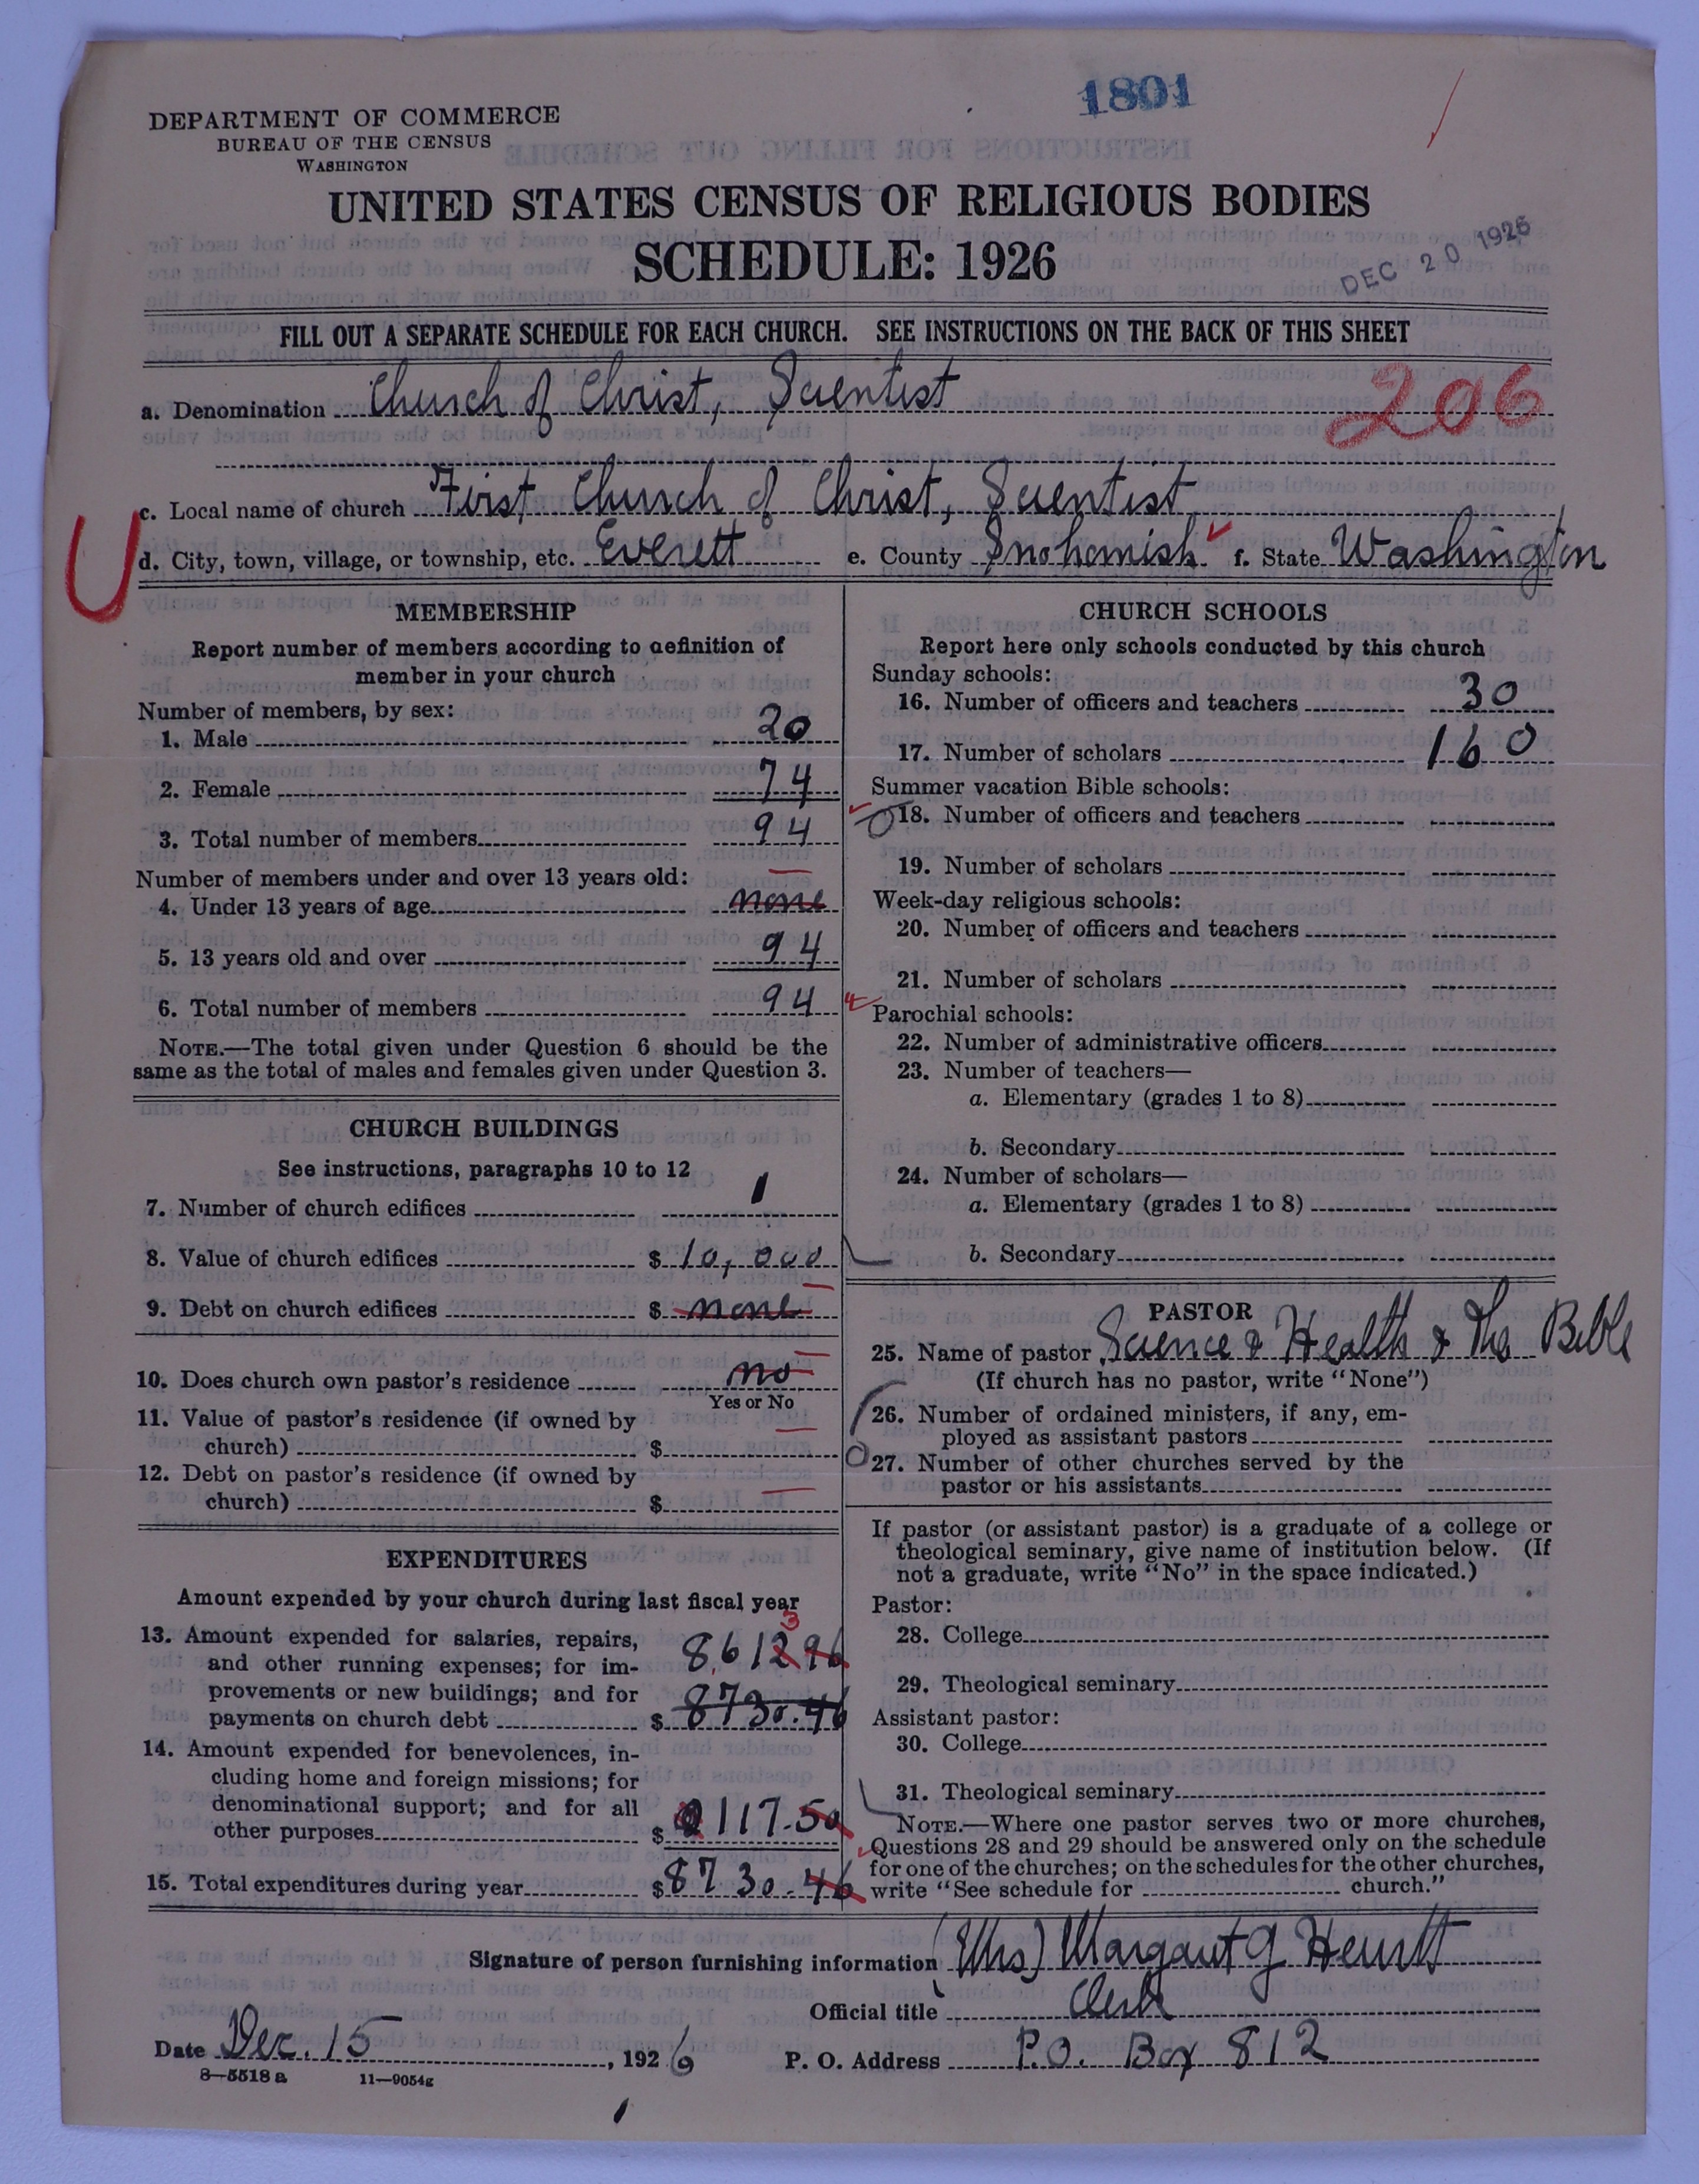 1801
DEPARTMENT OF COMMERCE
BUREAU OF THE CENSUS
WASHINGTON
UNITED STATES CENSUS OF RELIGIOUS BODIES
SCHEDULE: 1926
DEC 20 1926
FILL OUT A SEPARATE SCHEDULE FOR EACH CHURCH. SEE INSTRUCTIONS ON THE BACK OF THIS SHEET
a. Denomination Church of Christ, Scientist
206
c. Local name of church First Church of Christ, Scientist
U
d. City, town, village, or township, etc. Everett e. County Snohomish f. State Washington
MEMBERSHIP
Report number of members according to definition of
member in your church
Number of members, by sex:
1. Male 20
2. Female 74
3. Total number of members 94
Number of members under and over 13 years old:
4. Under 13 years of age none
5. 13 years old and over 94
6. Total number of members 94
NOTE.—The total given under Question 6 should be the
same as the total of males and females given under Question 3.
CHURCH BUILDINGS
See instructions, paragraphs 10 to 12
7. Number of church edifices 1
8. Value of church edifices $ 10,000
9. Debt on church edifices $ none
10. Does church own pastor's residence no
Yes or No
11. Value of pastor's residence (if owned by
church) $
12. Debt on pastor's residence (if owned by
church) $
EXPENDITURES
Amount expended by your church during last fiscal year
3
13. Amount expended for salaries, repairs, 8,612 96
and other running expenses; for im-
provements or new buildings; and for
payments on church debt $ 8730.46
14. Amount expended for benevolences, in-
cluding home and foreign missions; for
denominational support; and for all
other purposes $ 117.50
15. Total expenditures during year $ 8730.46
CHURCH SCHOOLS
Report here only schools conducted by this church
Sunday schools:
16. Number of officers and teachers 30
17. Number of scholars 160
Summer vacation Bible schools:
18. Number of officers and teachers
19. Number of scholars
Week-day religious schools:
20. Number of officers and teachers
21. Number of scholars
Parochial schools:
22. Number of administrative officers
23. Number of teachers—
a. Elementary (grades 1 to 8)
b. Secondary
24. Number of scholars—
a. Elementary (grades 1 to 8)
b. Secondary
PASTOR
25. Name of pastor Science & Health & The Bible
(If church has no pastor, write "None")
26. Number of ordained ministers, if any, em-
ployed as assistant pastors
27. Number of other churches served by the
pastor or his assistants
If pastor (or assistant pastor) is a graduate of a college or
theological seminary, give name of institution below. (If
not a graduate, write "No" in the space indicated.)
Pastor:
28. College
29. Theological seminary
Assistant pastor:
30. College
31. Theological seminary
NOTE.—Where one pastor serves two or more churches,
Questions 28 and 29 should be answered only on the schedule
for one of the churches; on the schedules for the other churches,
write "See schedule for church."
Signature of person furnishing information (Mrs) Margaret G Hewitt
Official title Clerk
Date Dec. 15, 1926 P. O. Address P.O. Box 812
8—5518 a 11—9054g